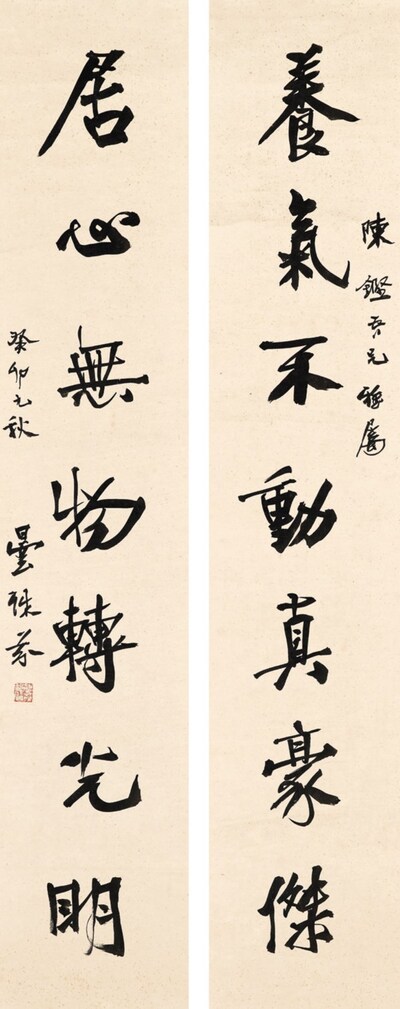 養氣不動真豪傑
陳鏗吾兄雅屬
居心無物轉光明
癸卯之秋
曇殊